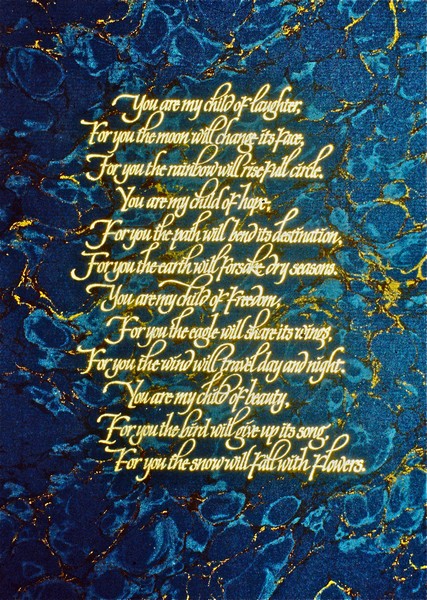 You are my child of laughter,
For you the moon will change its face,
For you the rainbow will rise full circle.
You are my child of hope.
For you the path will bend its destination,
For you the earth will forsake dry seasons.
You are my child of freedom,
For you the eagle will share its wings,
For you the wind will travel day and night.
You are my child of beauty,
For you the bird will give up its song,
For you the snow will fall with flowers.